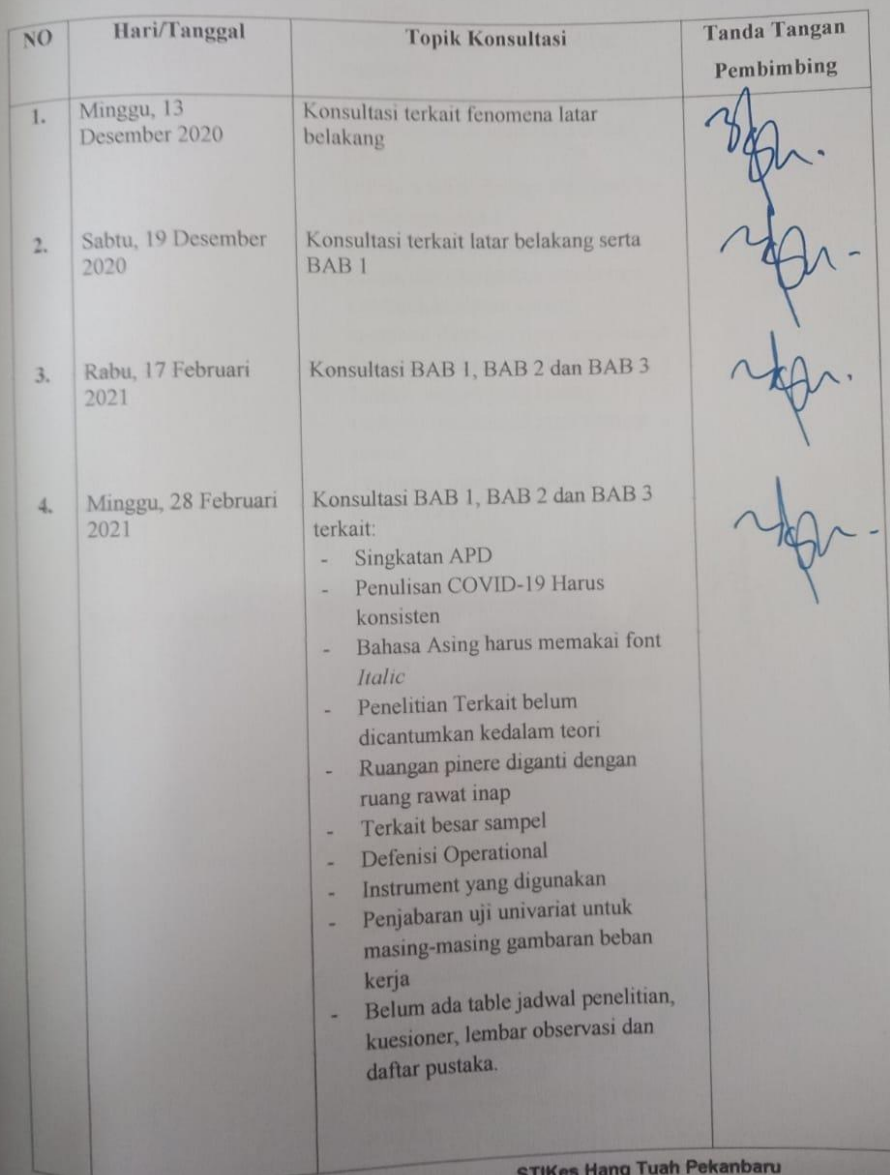 NO
Hari/Tanggal
Topik Konsultasi
Tanda Tangan
Pembimbing
1.
Minggu, 13
Desember 2020
Konsultasi terkait fenomena latar
belakang
2.
Sabtu, 19 Desember
2020
Konsultasi terkait latar belakang serta
BAB 1
3.
Rabu, 17 Februari
2021
Konsultasi BAB 1, BAB 2 dan BAB 3
4.
Minggu, 28 Februari
2021
Konsultasi BAB 1, BAB 2 dan BAB 3
terkait:
- Singkatan APD
- Penulisan COVID-19 Harus
konsisten
- Bahasa Asing harus memakai font
Italic
- Penelitian Terkait belum
dicantumkan kedalam teori
- Ruangan pinere diganti dengan
ruang rawat inap
- Terkait besar sampel
- Defenisi Operational
- Instrument yang digunakan
- Penjabaran uji univariat untuk
masing-masing gambaran beban
kerja
- Belum ada table jadwal penelitian,
kuesioner, lembar observasi dan
daftar pustaka.
STIKes Hang Tuah Pekanbaru